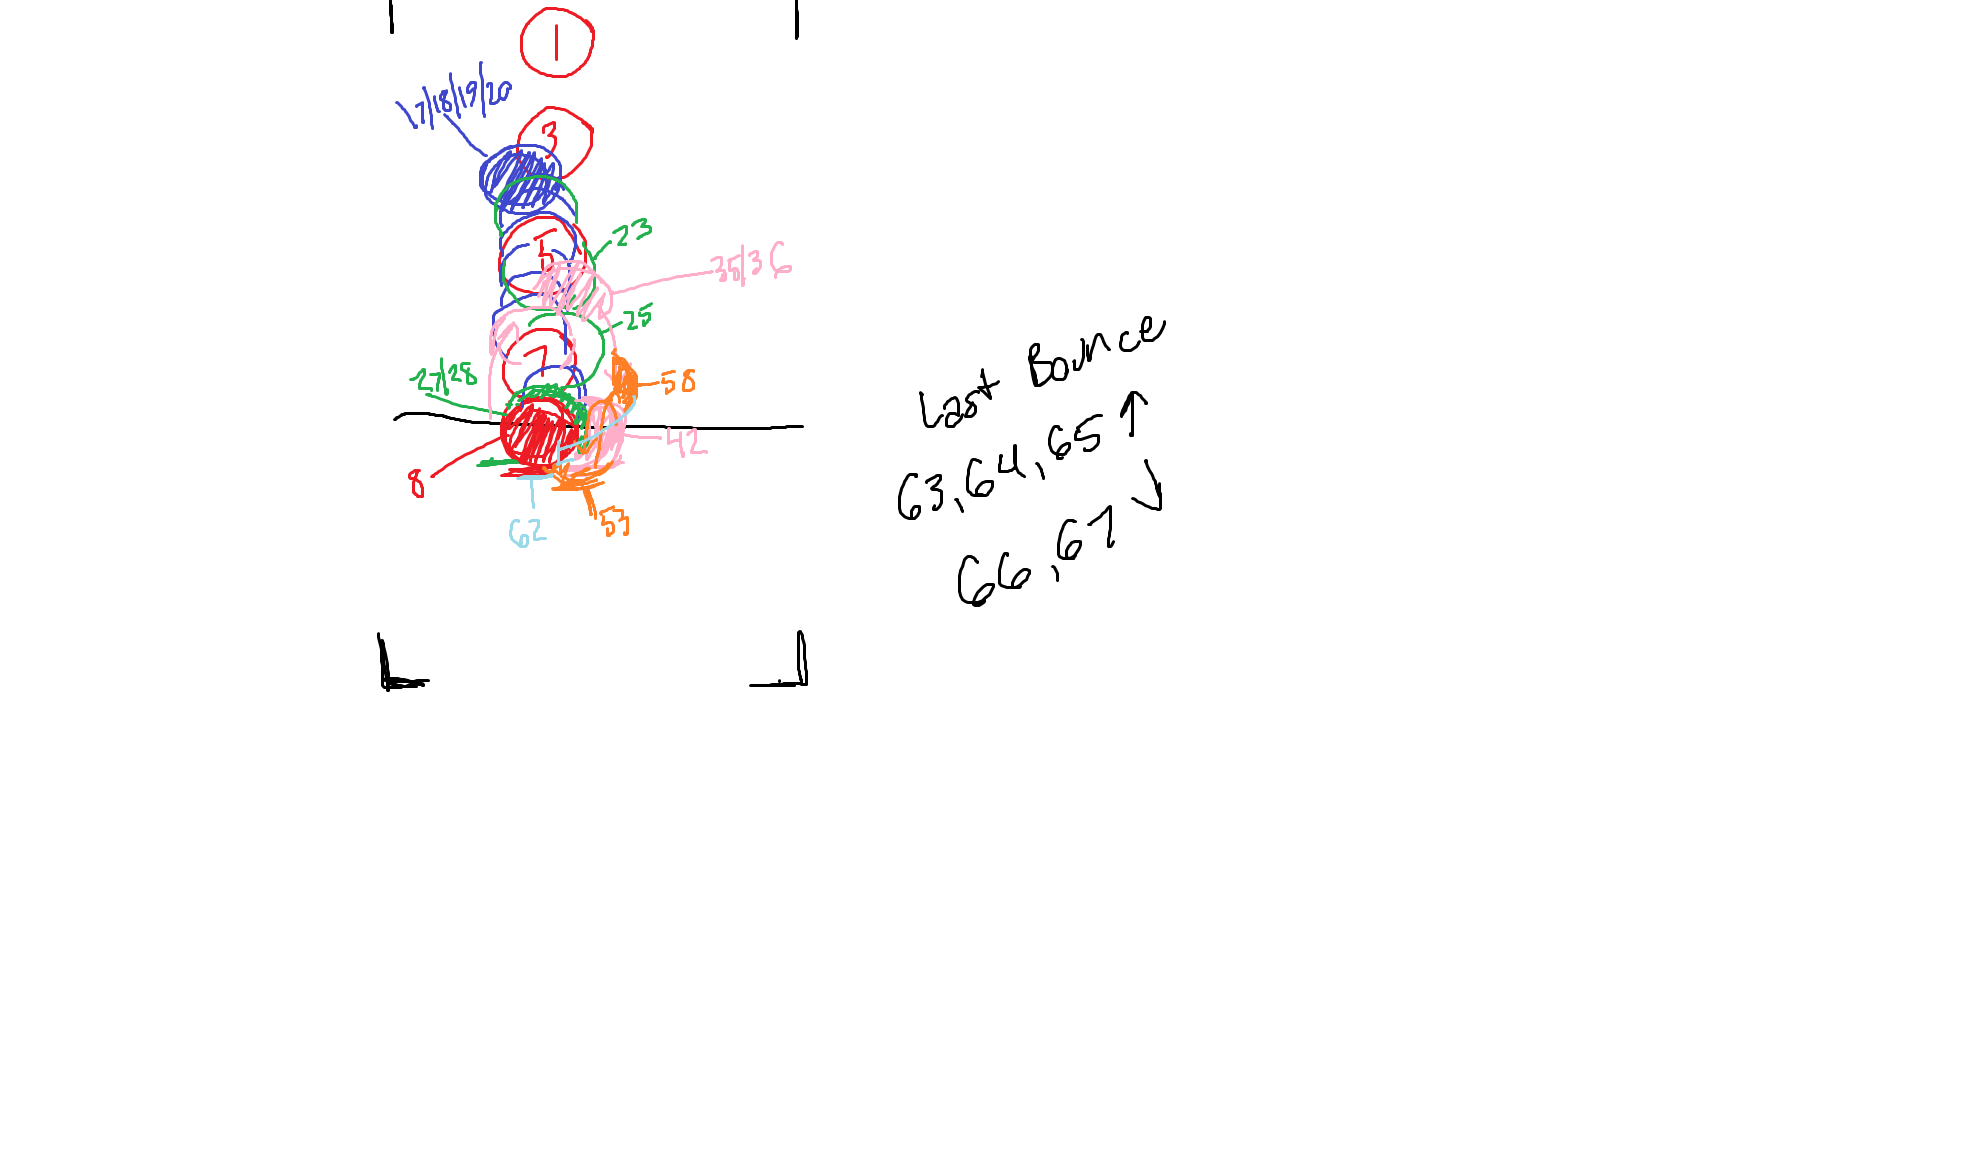 1
17/18/19/20
3
23
5
35/36
25
7
27/28
58
42
8
53
62
Last Bounce
63,64,65↑
66,67↓